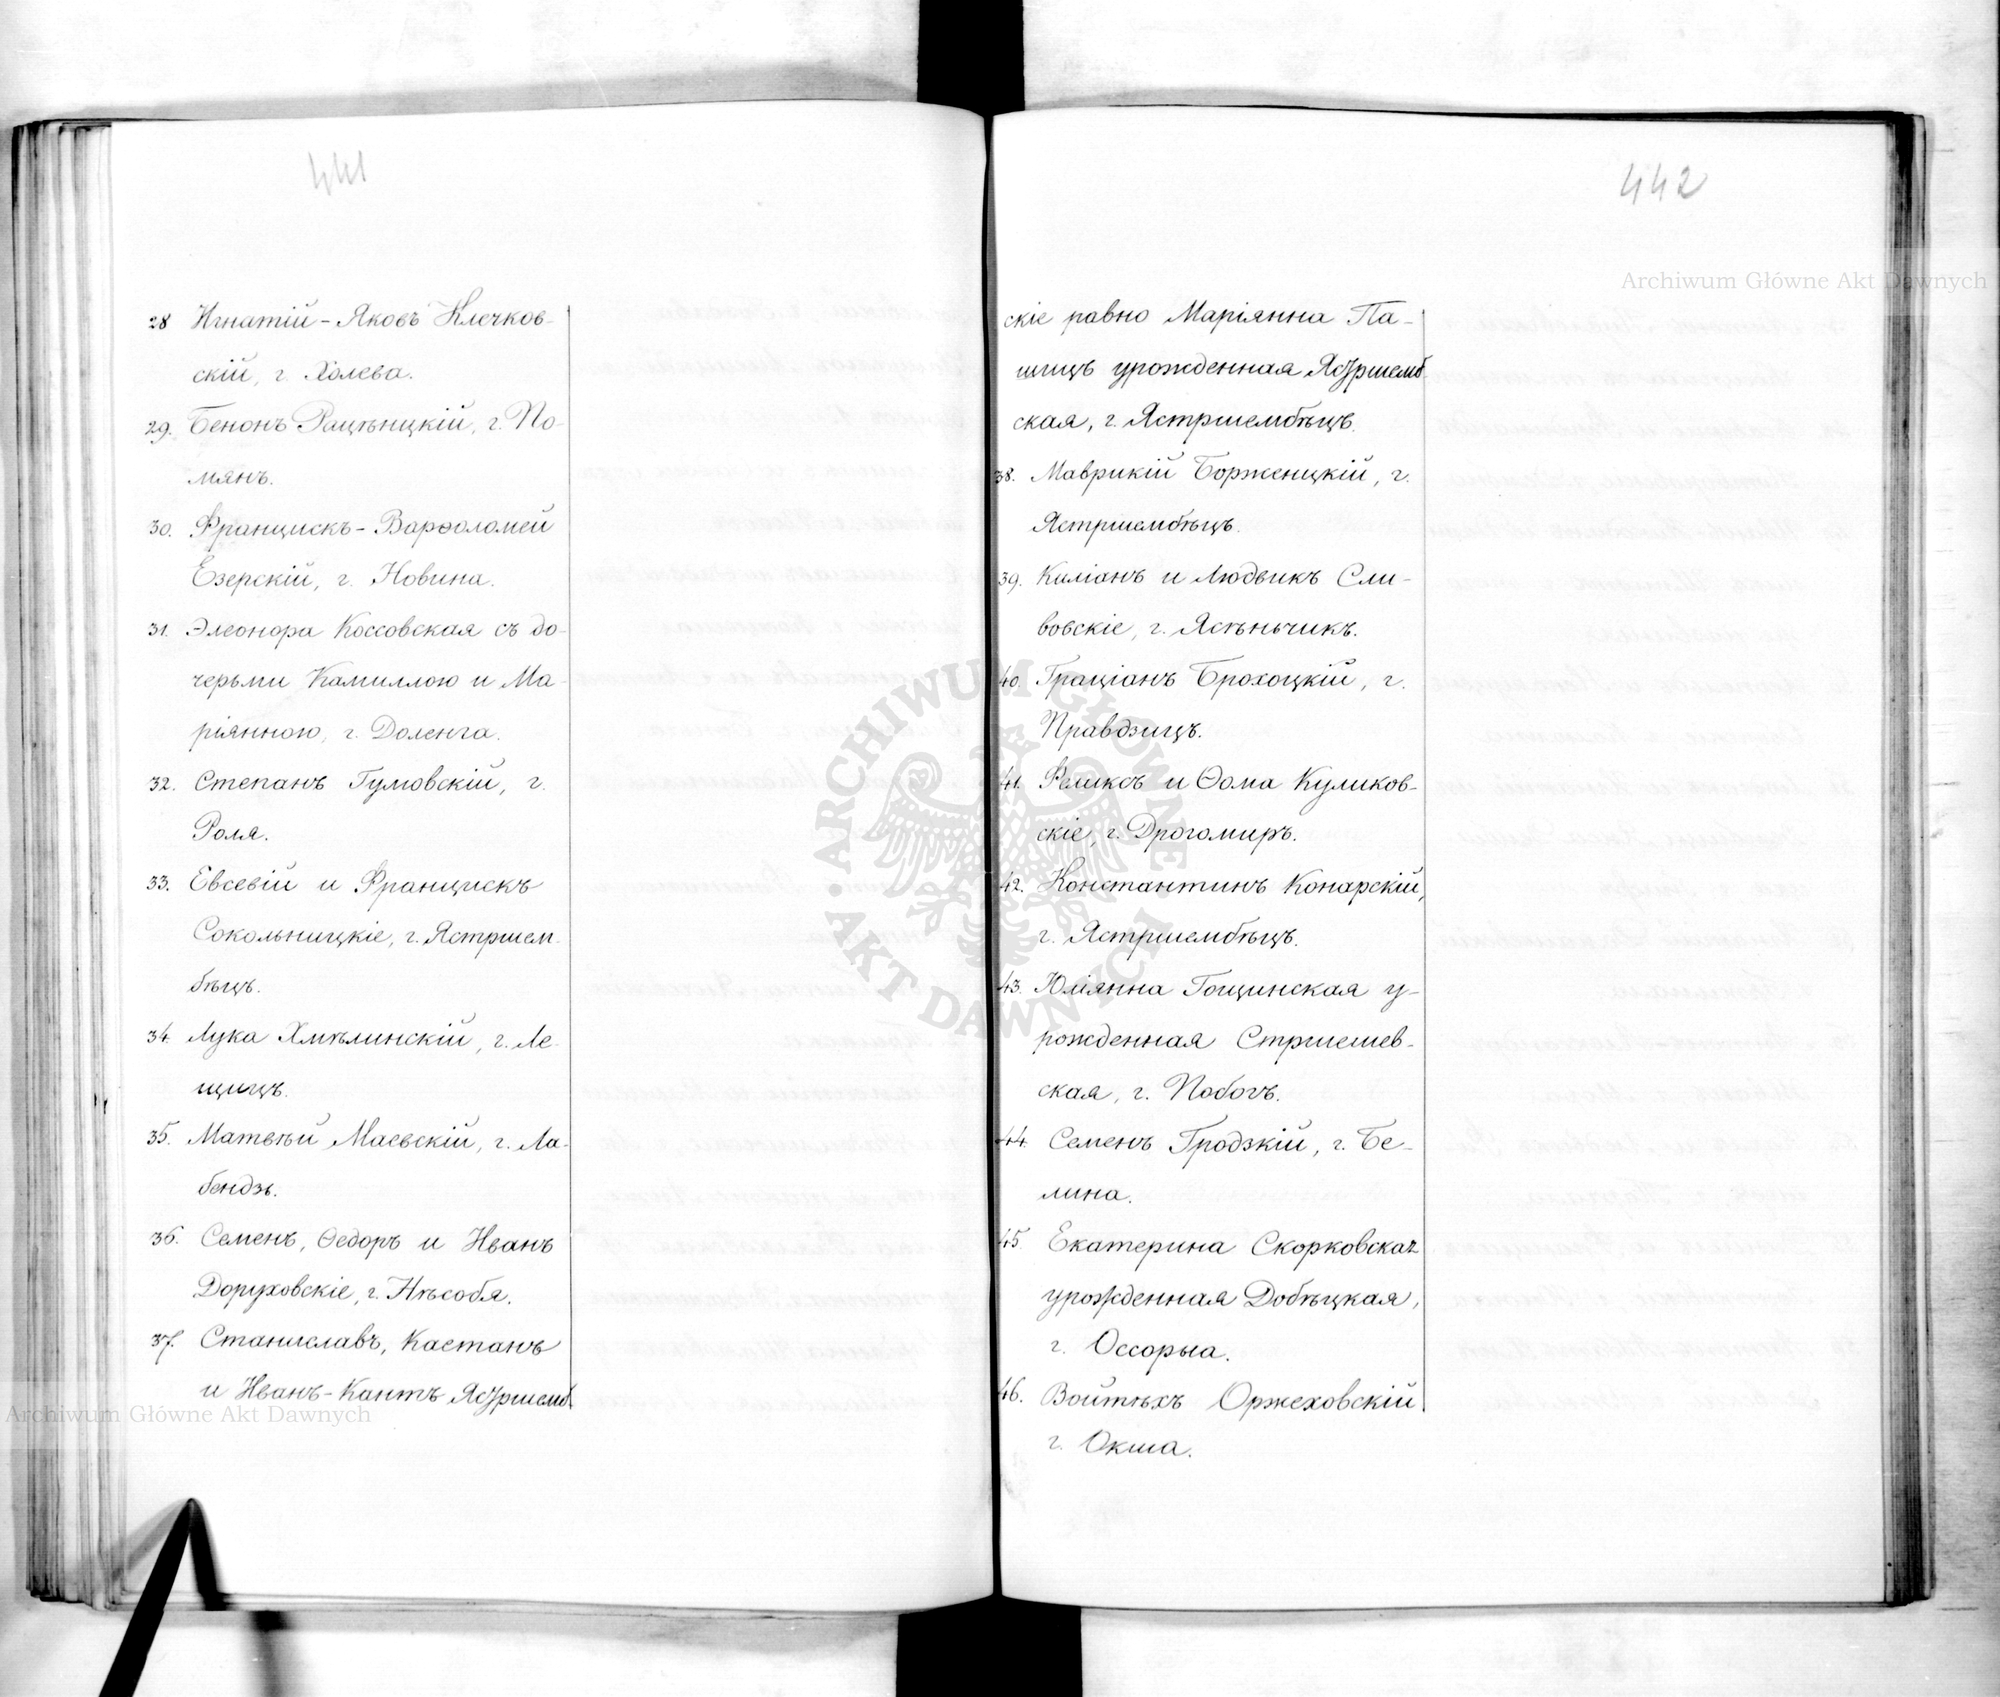 441
28 Игнатій-Яковъ Клечков-
скій, г. Холева.
29. Бенонъ Рацѣнцкій, г. По-
мянъ.
30. Францискъ-Варѳоломей
Езерскій, г. Новина.
31. Элеонора Коссовская съ до-
черьми Камиллою и Ма-
ріянною, г. Доленга.
32. Степанъ Гумовскій, г.
Роля.
33. Евсевій и Францискъ
Сокольницкіе, г. Ястршем-
бѣцъ.
34. Лука Хмѣлинскій, г. Ле-
щицъ.
35. Матвѣй Маевскій, г. Ла-
бендзь.
36. Семенъ, Ѳедоръ и Иванъ
Доруховскіе, г. Нѣсобя.
37. Станиславъ, Каетанъ
и Иванъ-Кантъ
442
скіе равно Маріянна Па-
шицъ урожденная
ская, г. Ястршембѣцъ.
38. Маврикій Борженцкій, г.
Ястршембѣцъ.
39. Киліанъ и Людвикъ Сли-
вовскіе, г. Ясѣньчикъ.
40. Граціанъ Брохоцкій, г.
Правдзицъ.
41. Феликсъ и Ѳома Куликов-
скіе, г. Дрогомиръ.
42. Константинъ Конарскій,
г. Ястршембѣцъ.
43. Юліянна Гощинская у-
рожденная Стршешев-
ская, г. Побогъ.
44. Семенъ Гродзкій, г. Бе-
лина.
45. Екатерина Скорковская
урожденная Добѣцкая,
г. Оссорыа.
46. Войтѣхъ Оржеховскій
г. Окша.
Archiwum Główne Akt Dawnych
Archiwum Główne Akt Dawnych
ARCHIWUM GŁÓWNE AKT DAWNYCH